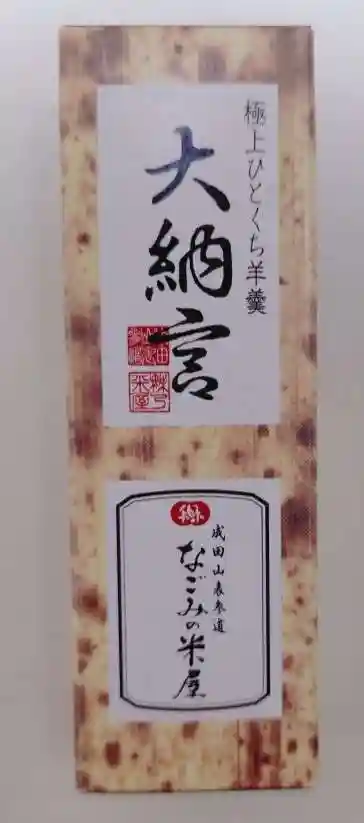 極上ひとくち羊羹
大納言
成田山表参道
なごみの米屋